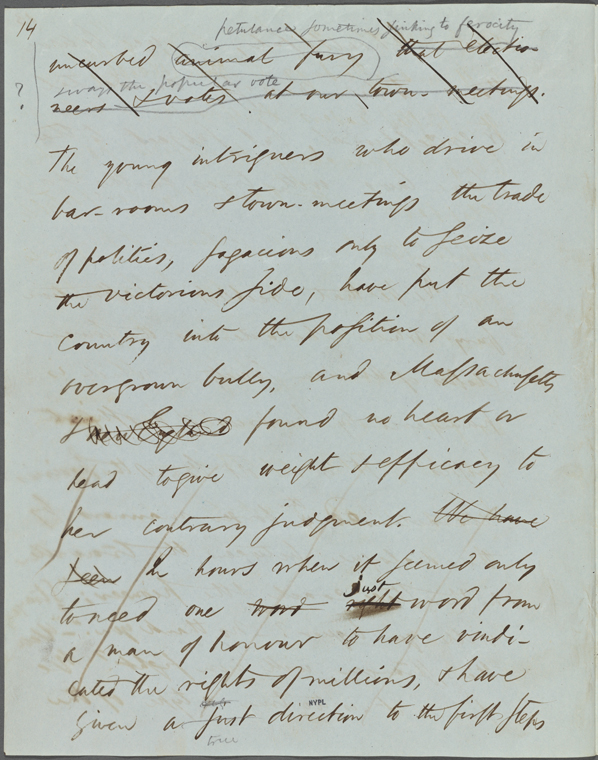 14
petulance sometimes sinking to ferocity
uncurbed animal fury that electio
sways the popular vote
neers & votes at our town-meetings.
?
The young intriguers who drive in
bar-rooms & town-meetings the trade
of politics, sagacious only to seize
the victorious side, have put the
country into the position of an
overgrown bully, and Massachusetts
& New England found no heart or
head to give weight & efficacy to
her contrary judgment. We have
seen In hours when it seemed only
just
to need one word right word from
a man of honour to have vindi-
cated the rights of millions, & have
given a just direction to the first steps
NYPL
true